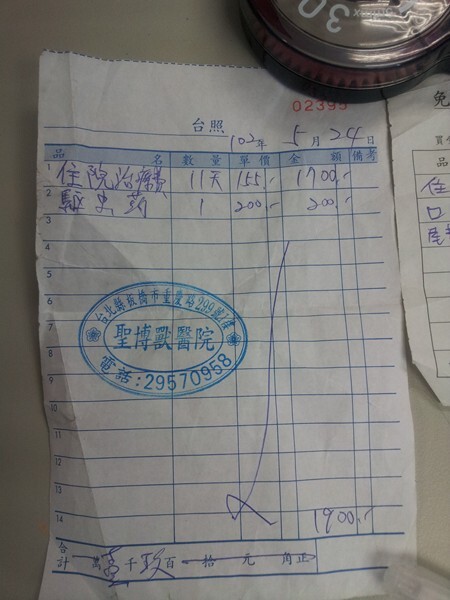 30
02395
台照
102年 5月 24日
品名 數量 單價 金額 備考
1 住院治療費 11天 155.- 1700.-
2 驅蟲藥 1 200.- 200.-
3
4
5
6
台北縣板橋市重慶路299號1樓
7
8 聖博獸醫院
9 電話:29570958
10
11
12
13
14 1900.-
合計 萬壹千玖百拾元角正
免
品
住
口